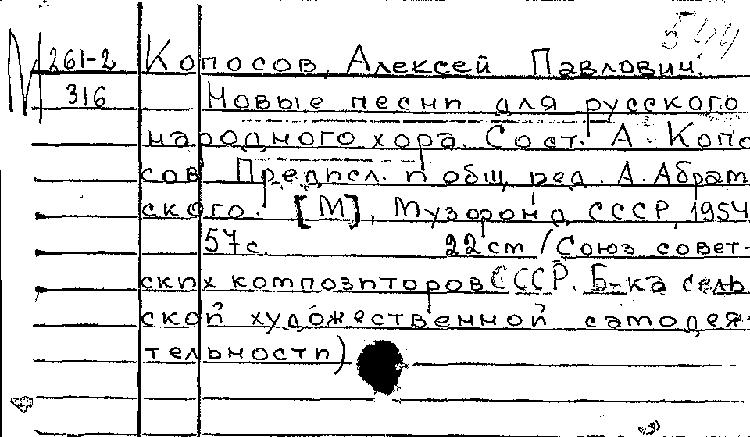 544
М 261-2 Копосов, Алексей Павлович.
316 Новые песни для русского
народного хора. Сост. А. Копо
сов. Предисл. и общ. ред. А. Абрам
ского. [М], Музфонд СССР, 1954
57 с. 22 cm /Союз совет-
ских композиторов СССР. Б-ка сель
ской художественной самодея-
тельности)